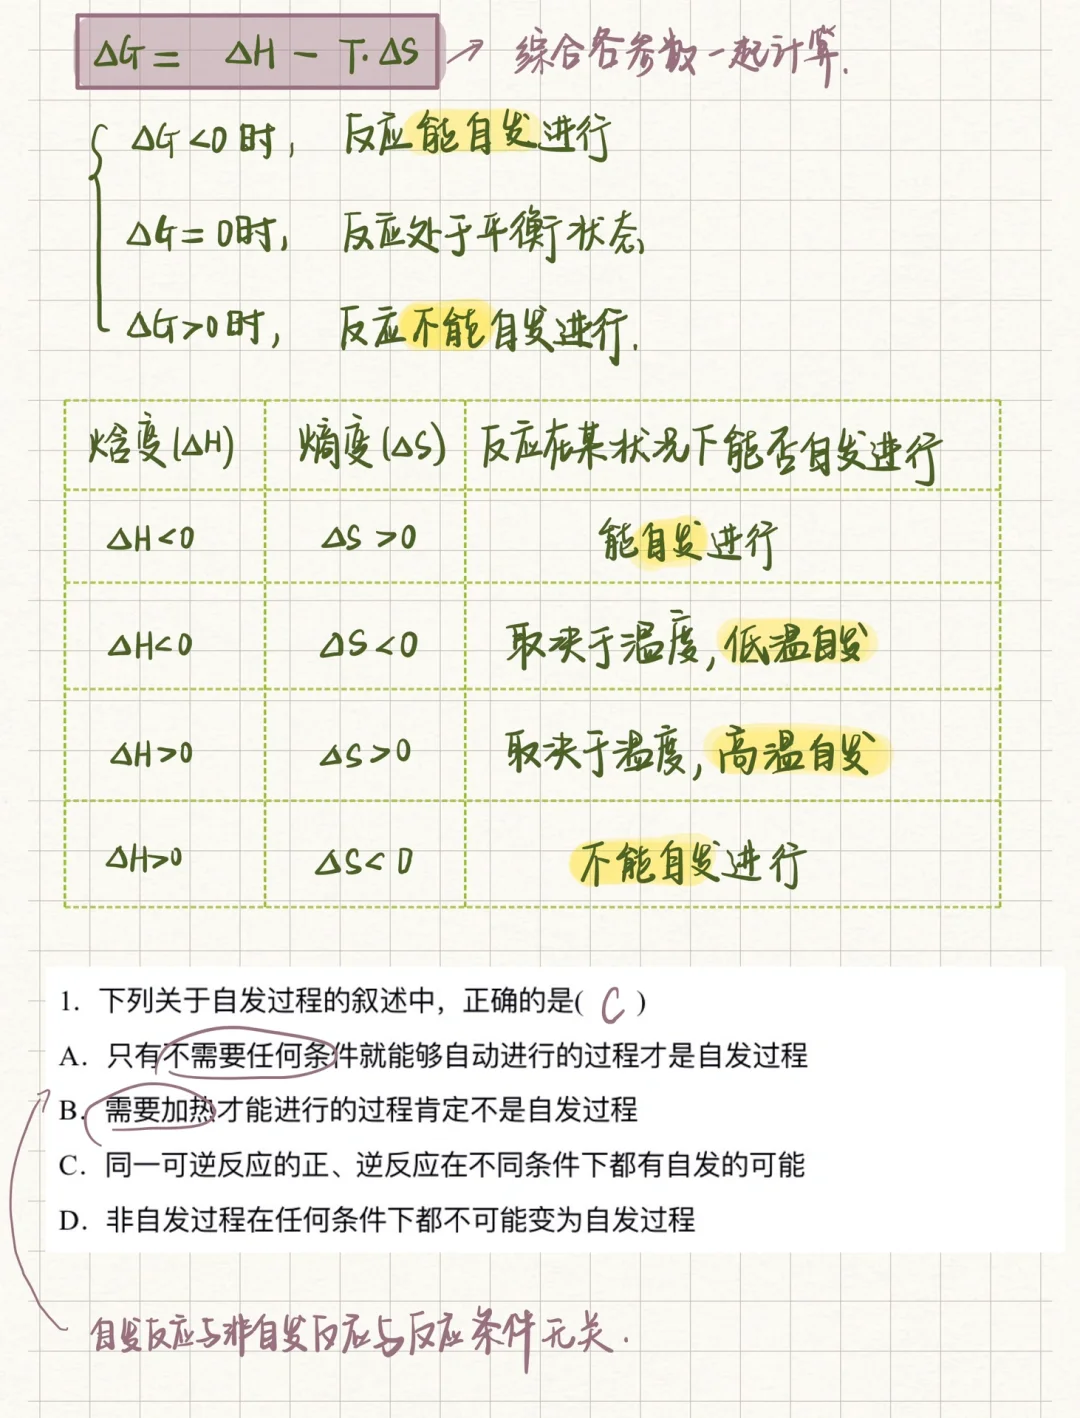 ΔG = ΔH - T·ΔS → 综合各参数一起计算.
ΔG<0时, 反应能自发进行
ΔG=0时, 反应处于平衡状态
ΔG>0时, 反应不能自发进行.
焓变(ΔH) 熵变(ΔS) 反应在某状况下能否自发进行
ΔH<0 ΔS>0 能自发进行
ΔH<0 ΔS<0 取决于温度,低温自发
ΔH>0 ΔS>0 取决于温度,高温自发
ΔH>0 ΔS<0 不能自发进行
1. 下列关于自发过程的叙述中，正确的是( C )
A. 只有不需要任何条件就能够自动进行的过程才是自发过程
B. 需要加热才能进行的过程肯定不是自发过程
C. 同一可逆反应的正、逆反应在不同条件下都有自发的可能
D. 非自发过程在任何条件下都不可能变为自发过程
自发反应与非自发反应与反应条件无关.